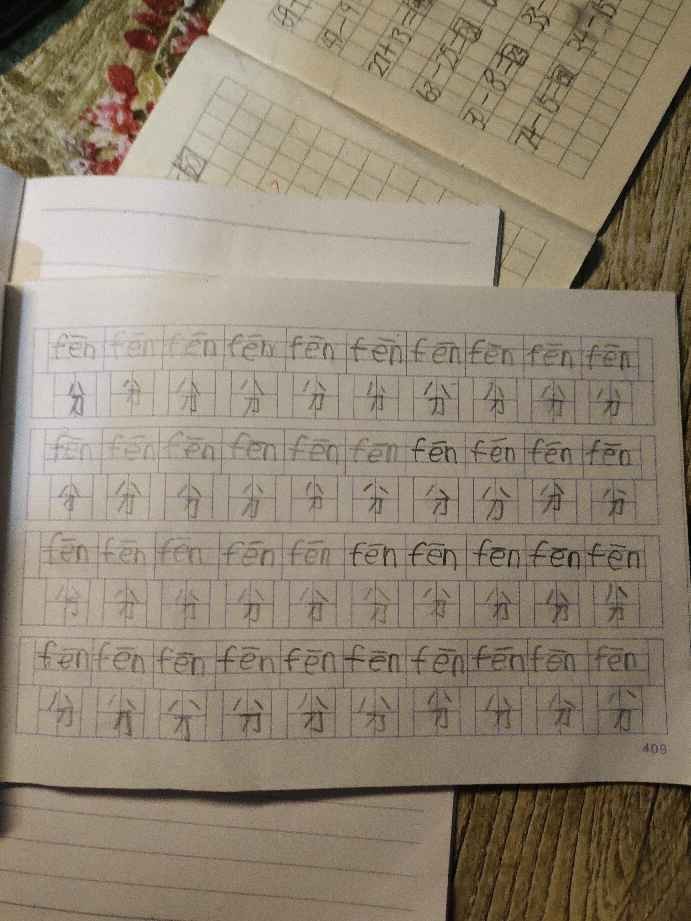 27+13=40
fēn fēn fēn fēn fēn fēn fēn fēn fēn fēn
分 分 分 分 分 分 分 分 分 分
fēn fēn fēn fēn fēn fēn fēn fēn fēn fēn
分 分 分 分 分 分 分 分 分 分
fēn fēn fēn fēn fēn fēn fēn fēn fēn fēn
分 分 分 分 分 分 分 分 分 分
fēn fēn fēn fēn fēn fēn fēn fēn fēn fēn
分 分 分 分 分 分 分 分 分 分
409